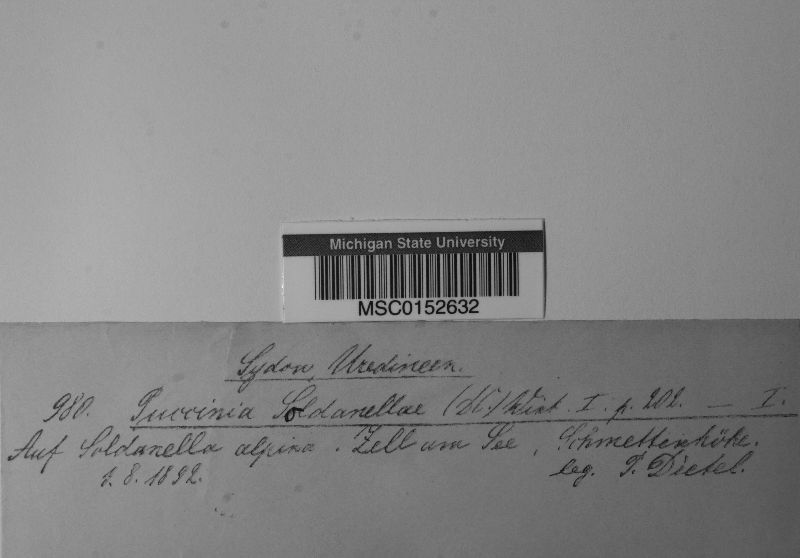 Michigan State University
MSC0152632
Sydow, Uredineen.
980. Puccinia Soldanellae (DC.) Wint. I. p. 202. — I.
Auf Soldanella alpina. Zell am See, Schmettenhöhe.
1. 8. 1892.
leg. P. Dietel.